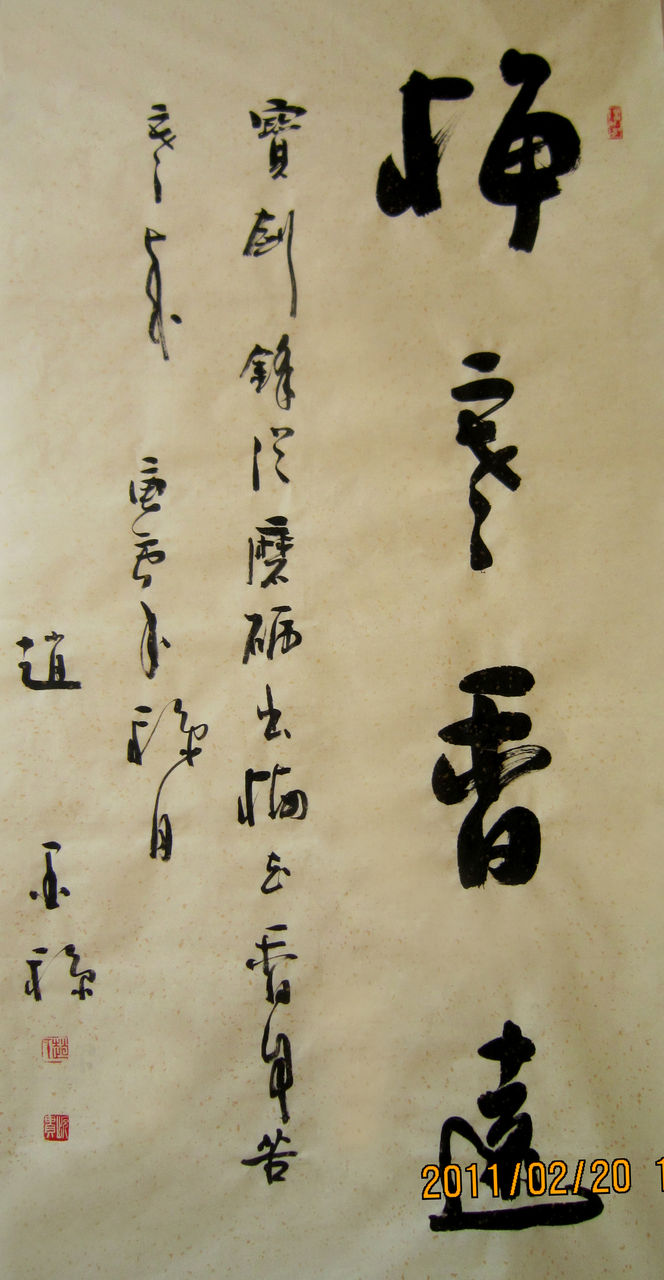 梅寒香遠
寶劍鋒從磨礪出梅花香自苦
寒來 庚寅年月
趙
2011/02/20 1